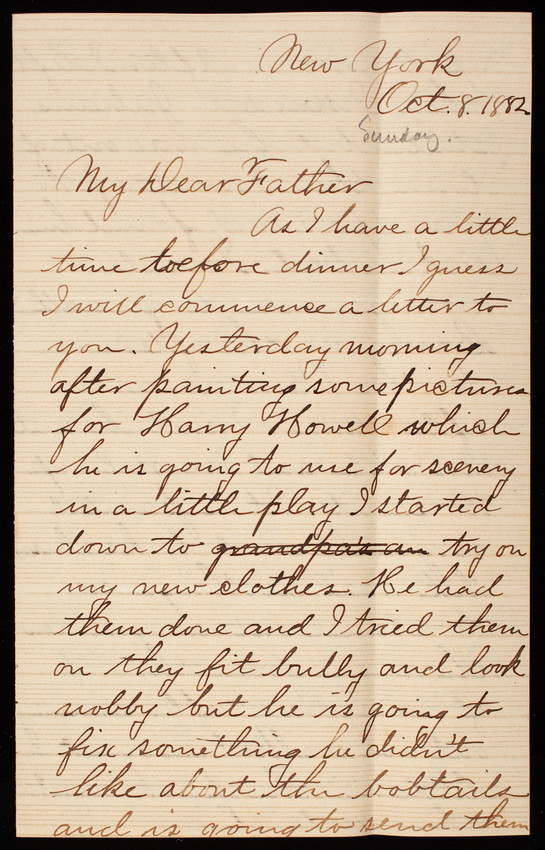 New York
Oct. 8. 1882
Sunday.
My Dear Father
As I have a little
time before dinner I guess
I will commence a letter to
you. Yesterday morning
after painting some pictures
for Harry Howell which
he is going to use for scenery
in a little play I started
down to grandpa's an try on
my new clothes. He had
them done and I tried them
on they fit bully and look
nobby but he is going to
fix something he didn't
like about the bobtails
and is going to send them